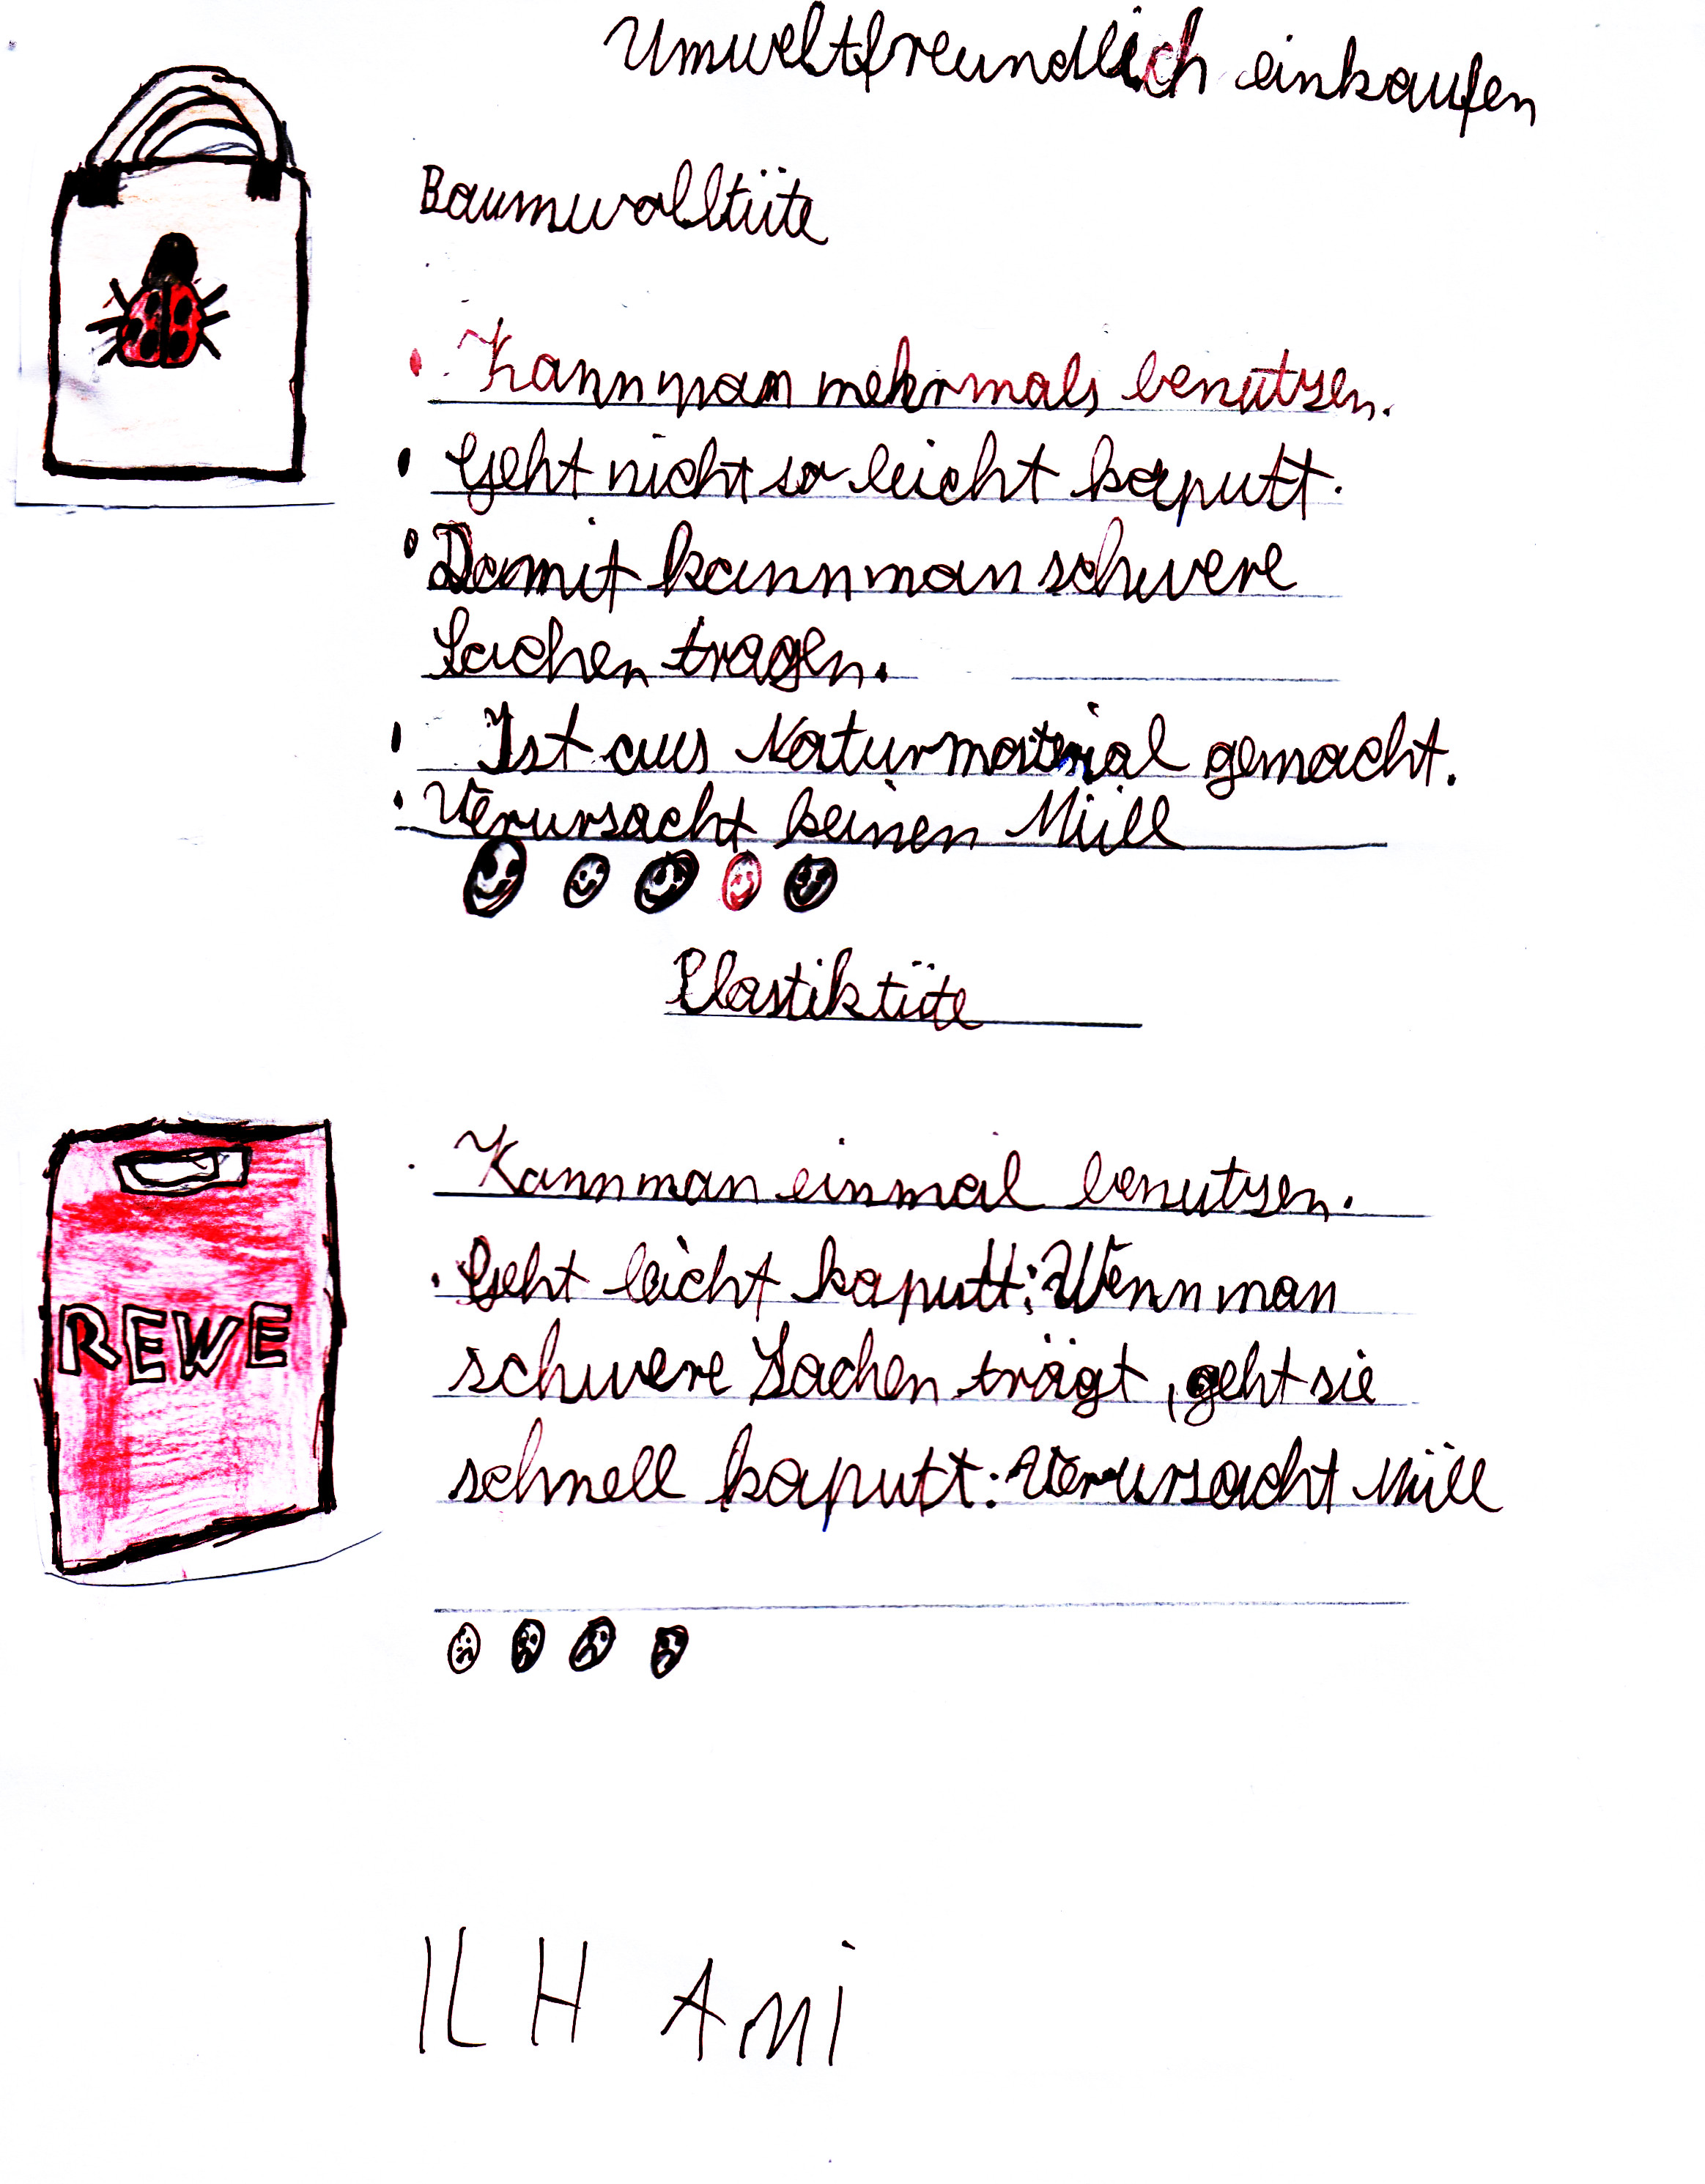 Umweltfreundlich einkaufen
Baumwolltüte
• Kann man mehrmals benutzen.
• Geht nicht so leicht kaputt.
• Damit kann man schwere
Sachen tragen.
• Ist aus Naturmaterial gemacht.
• Verursacht keinen Müll
Plastiktüte
• Kann man einmal benutzen.
• Geht leicht kaputt: Wenn man
schwere Sachen trägt, geht sie
schnell kaputt: Verursacht Müll
REWE
ILH AMi